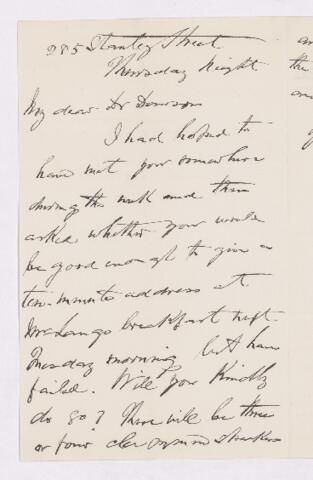 285 Stanley Street
Thursday Night
My dear Dr Dawson
I had hoped to
have met you somewhere
during the week and then
asked whether you would
be good enough to give a
ten-minute address at
breakfast next
Tuesday morning but have
failed. Will you Kindly
do so? There will be three
or four clergymen speakers
an
the